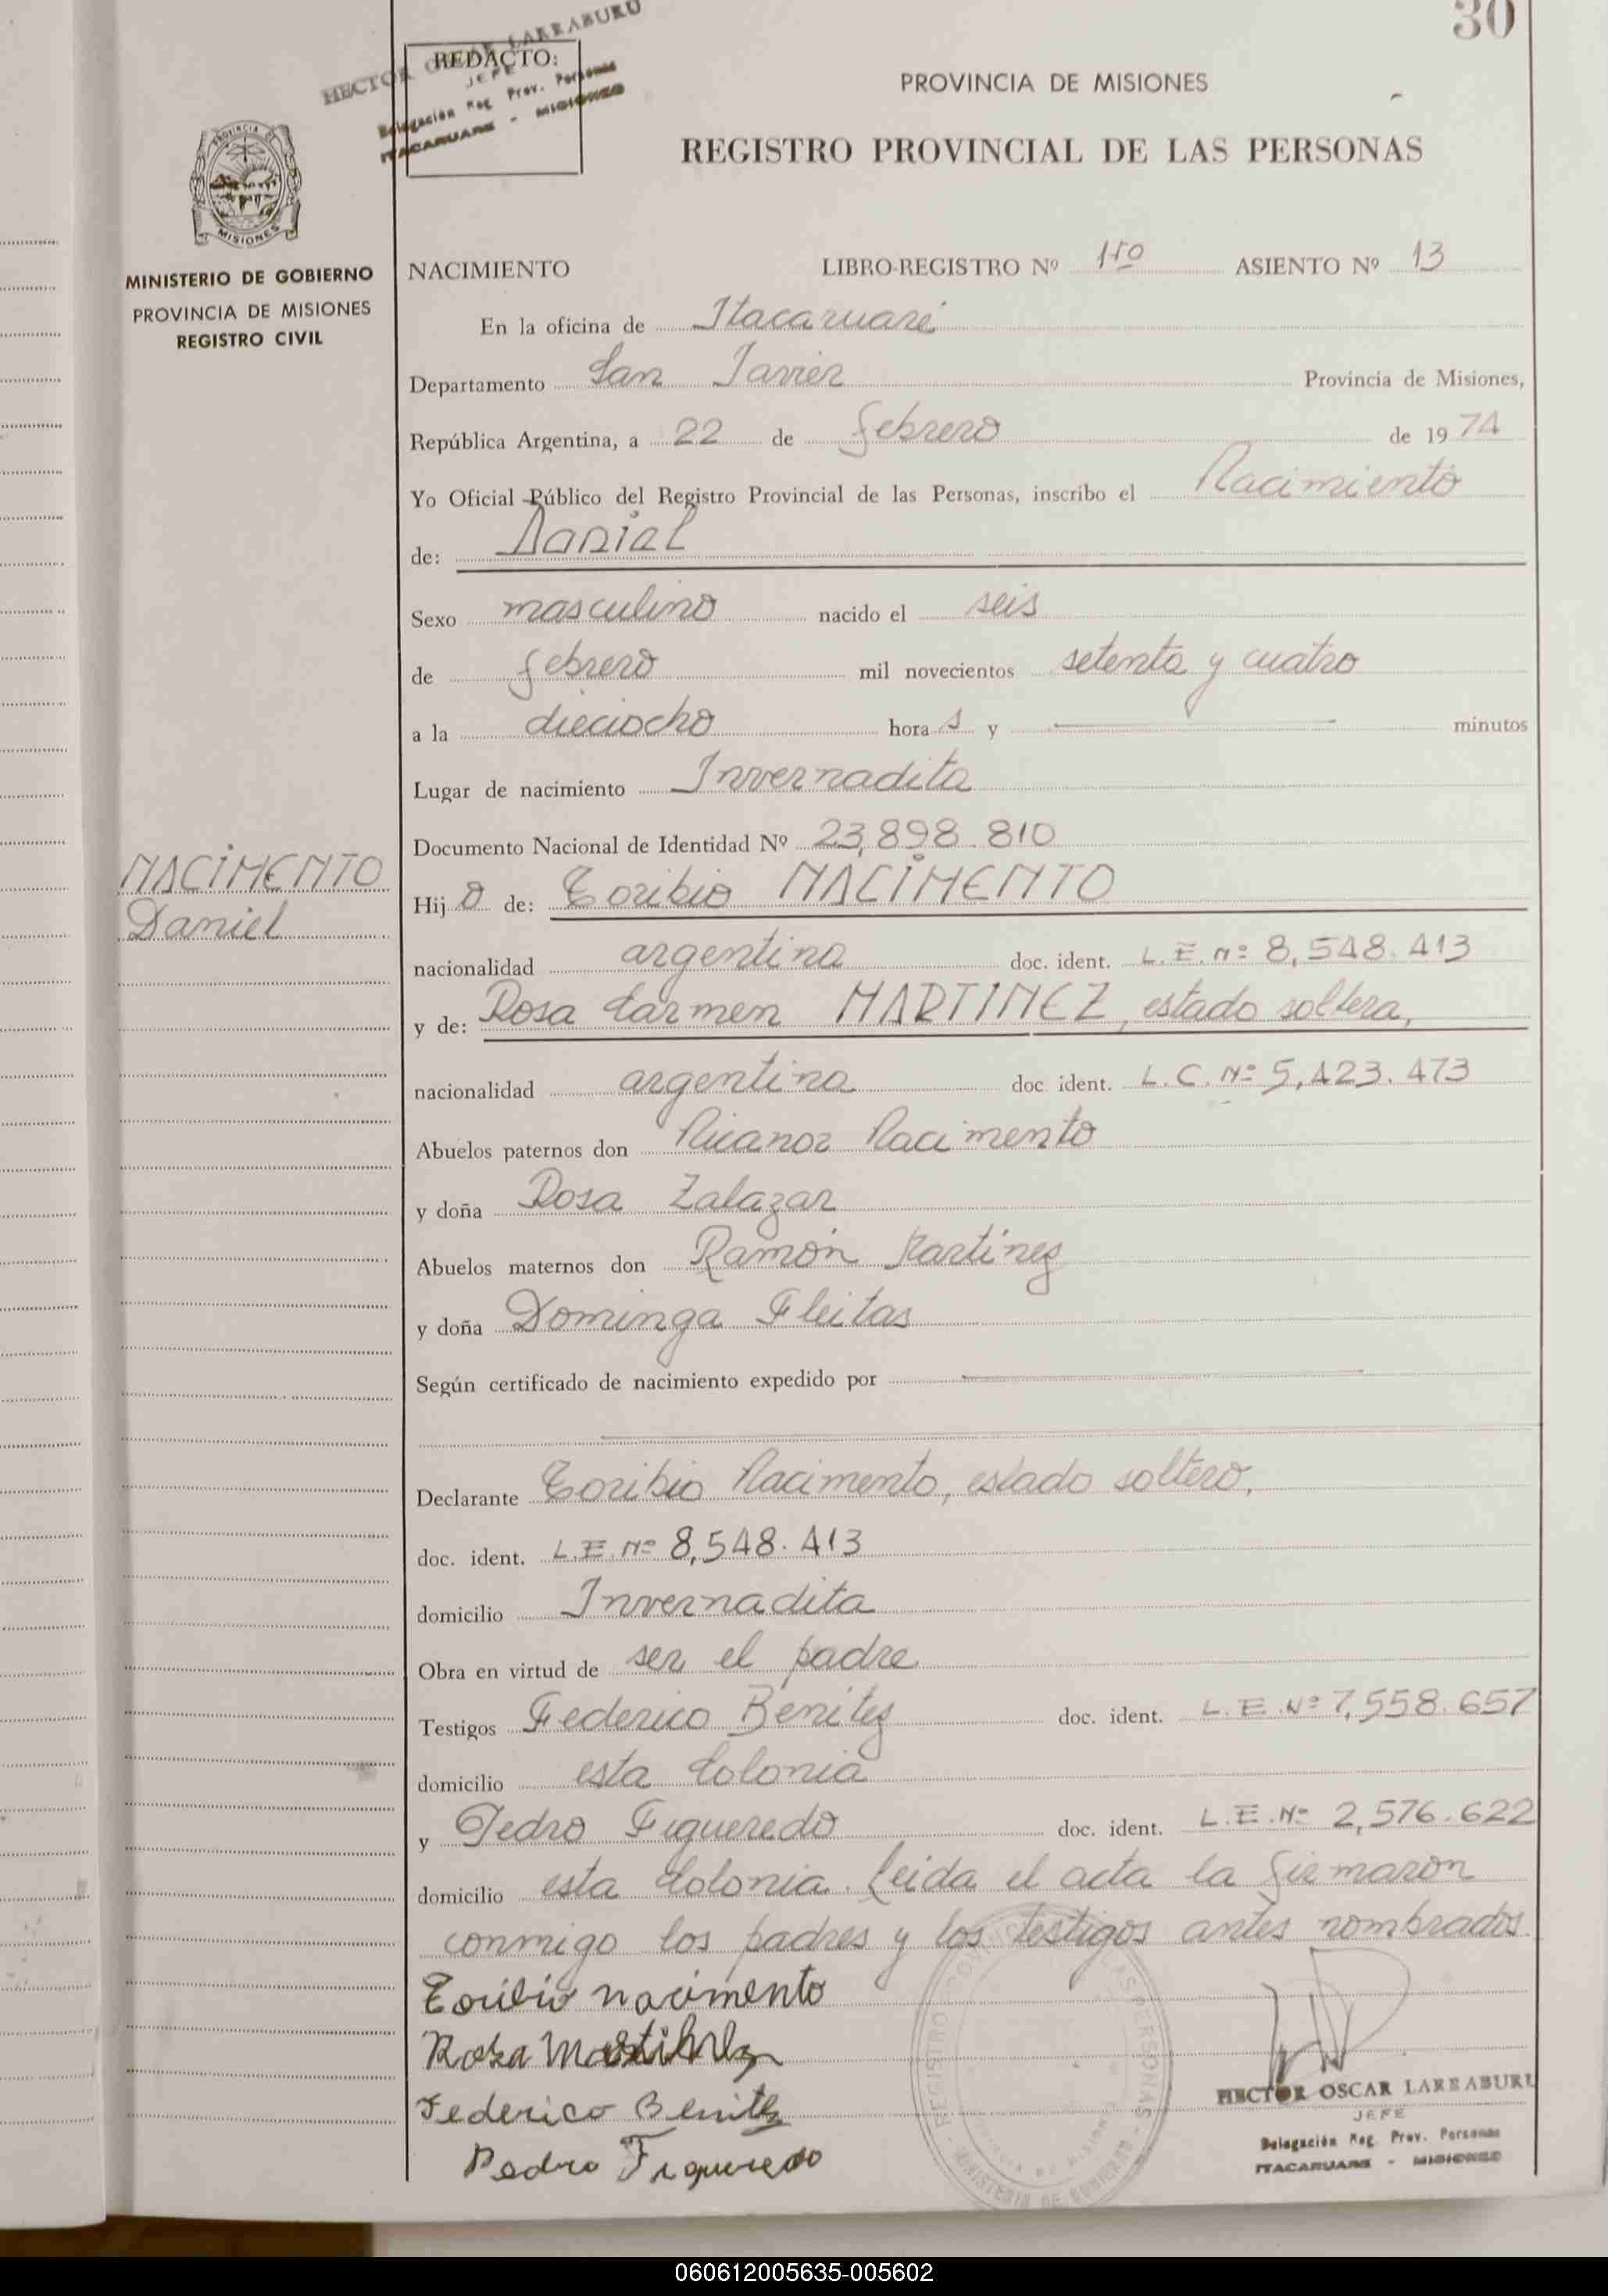 30
HECTOR OSCAR LARRABURU
REDACTO:
JEFE
Delegación Reg. Prov. Personas
ITACARUARE - MISIONES
PROVINCIA DE MISIONES
REGISTRO PROVINCIAL DE LAS PERSONAS
PROVINCIA DE
MISIONES
MINISTERIO DE GOBIERNO
PROVINCIA DE MISIONES
REGISTRO CIVIL
NACIMIENTO LIBRO-REGISTRO Nº 1ro ASIENTO Nº 13
En la oficina de Itacaruaré
Departamento San Javier Provincia de Misiones,
República Argentina, a 22 de febrero de 1974
Yo Oficial Público del Registro Provincial de las Personas, inscribo el Nacimiento
de: Daniel
Sexo masculino nacido el seis
de febrero mil novecientos setenta y cuatro
a la dieciocho hora s y minutos
Lugar de nacimiento Invernadita
Documento Nacional de Identidad Nº 23,898.810
NACIMENTO
Daniel
Hij o de: Toribio NACIMENTO
nacionalidad argentina doc. ident. L.E. Nº 8,548.413
y de: Rosa Carmen MARTINEZ, estado soltera,
nacionalidad argentina doc ident. L.C. Nº 5,423.473
Abuelos paternos don Nicanor Nacimento
y doña Rosa Zalazar
Abuelos maternos don Ramón Martinez
y doña Dominga Fleitas
Según certificado de nacimiento expedido por
Declarante Toribio Nacimento, estado soltero,
doc. ident. L.E. Nº 8,548.413
domicilio Invernadita
Obra en virtud de ser el padre
Testigos Federico Benitez doc. ident. L.E.Nº 7,558.657
domicilio esta Colonia
y Pedro Figueredo doc. ident. L.E.Nº 2,576.622
domicilio esta Colonia. Leida el acta la firmaron
conmigo los padres y los testigos antes nombrados.
Toribio nacimento
Rosa Martinez
Federico Benitez
Pedro Figueredo
HECTOR OSCAR LARRABURU
JEFE
Delegación Reg. Prov. Personas
ITACARUARE - MISIONES
060612005635-005602